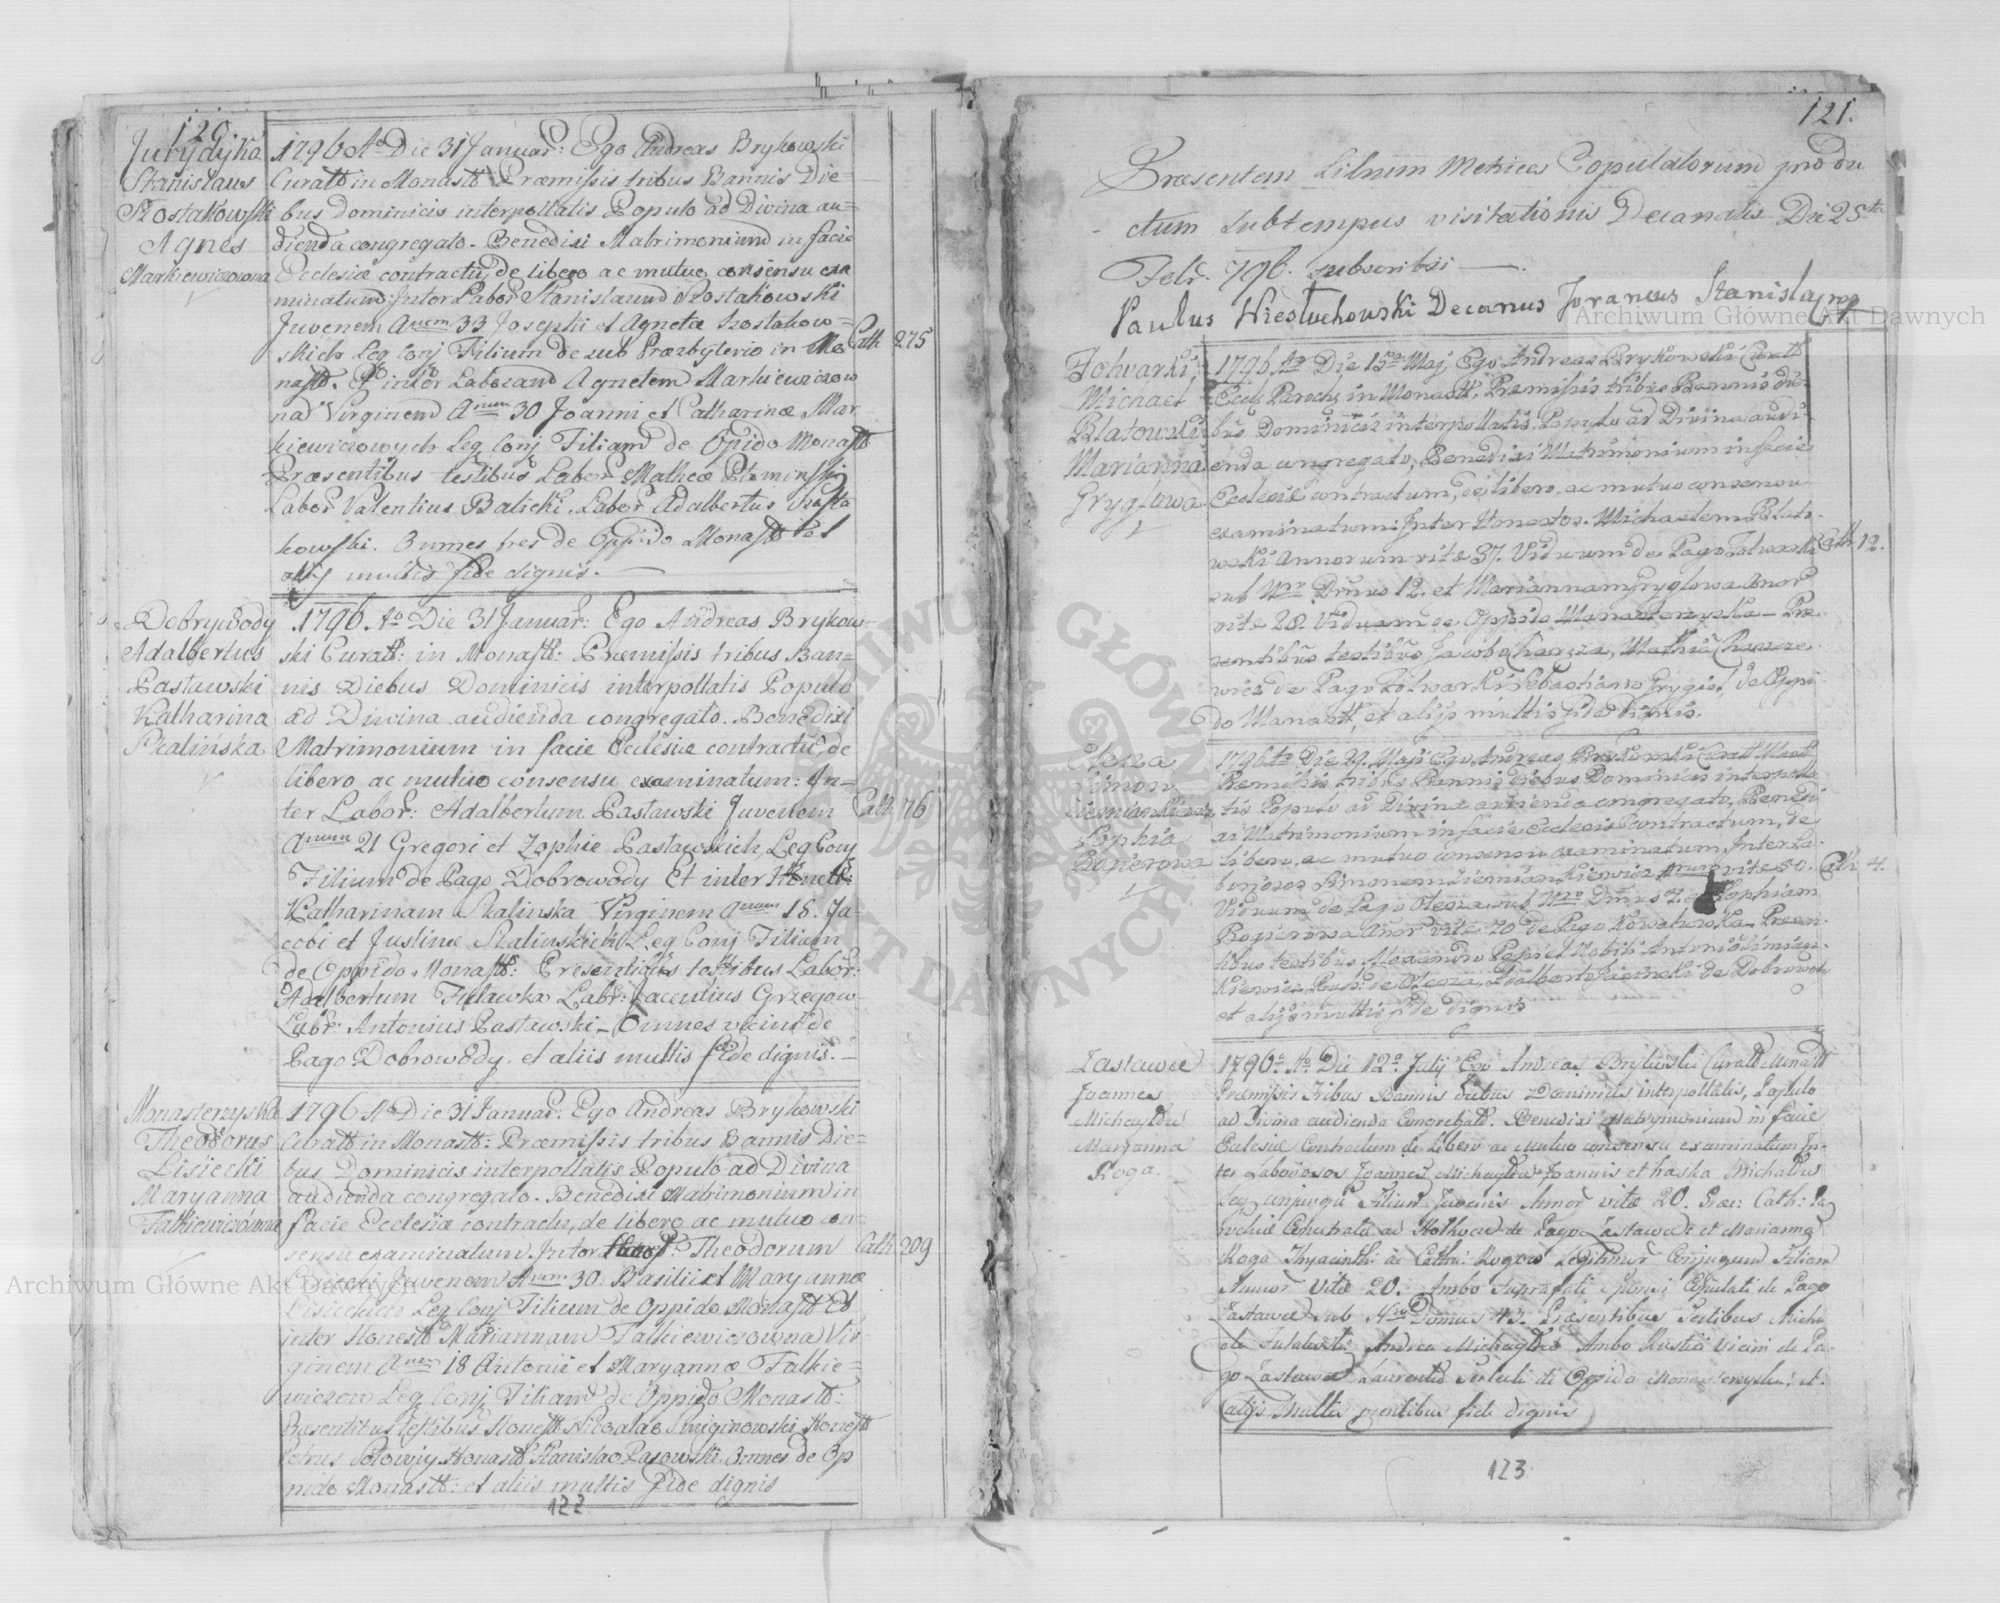 120
Jurydyka
Stanislaus
Szostakowski
Agnes
Markiewiczowna
1796 Ao Die 31 Januar: Ego Andreas Brykowski
Curatt in Monastt Præmissis tribus Bannis Die=
bus Dominicis interpollatis Populo ad Divina au=
dienda congregato. Benedixi Matrimonium in facie
Ecclesiæ contractu, de libero ac mutuo consensu exa
minatum: Inter Labor: Stanislaum Szostakowski
Juvenem Anum 33 Josephi et Agnetæ Szostakow=
skich Leg Conj Filium de sub Præzbyterio in Mo
nastt. Et inter Laboram Agnetem Markiewiczow
na Virginem Anum 30 Joanni et Catharinæ Mar
kiewiczowych Leg Conj Filiam de Opido Monastt
Præsentibus testibus Labor Matheo
Labor Valentius Balicki. Labor Adalbertus Szosta
kowski. Omnes tres de Oppido Monastt et
aliis multis fide dignis.
Cath 275
Dobrywody
Adalbertus
Pastawski
Katharina
Skalińska
1796 Ao Die 31 Januar: Ego Andreas Brykow=
ski Curatt: in Monastt: Præmissis tribus Ban=
nis Diebus Dominicis interpollatis Populo
ad Diwina audienda congregato. Benedixi
Matrimonium in facie Ecclesiæ contractu de
libero ac mutuo consensu examinatum: In=
ter Labor: Adalbertum Pastawski Juvenem
Anum 21 Gregori et Zophie Pastawskich, Leg Conj
Filium de Pago Dobrowody Et inter Honestt:
Katharinam Skalinska Virginem Anum 18. Ja=
cobi et Justinæ Skalinskich Leg Conj Filiam
de Oppido Monastt: Presentibus testibus Labor:
Adalbertum Labr: Grzegow
Labr: Antonius Pastawski - Omnes vicini de
Pago Dobrowody. et aliis multis fide dignis.
Cath 76
Monasterzyska
Theodorus
Lisiecki
Maryanna
Falkiewiczówna
1796 Ao Die 31 Januar: Ego Andreas Brykowski
Curatt in Monastt: Præmissis tribus Bannis Die=
bus Dominicis interpollatis Populo ad Divina
audienda congregato. Benedixi Matrimonium in
facie Ecclesiæ contractu, de libero ac mutuo con=
sensu examinatum. Inter Theodorum
Lisiecki Juvenem Anum 30. Basilii et Maryannæ
Lisieckich Leg Conj Filium de Oppido Monastt Et
inter Honestt Mariannam Falkiewiczowna Vir
ginem Anum 18 Antonii et Maryannæ Falkie=
wiczow Leg Conj Filiam de Oppido Monastt:
Præsentibus testibus Honestt Nicolao Honestt
Petrus Honestt Stanislao Omnes de Op
pido Monastt: et aliis multis fide dignis
Cath 209
122
121.
Præsentem Librum Metrices Copulatorum produ
ctum sub tempus visitationis Decanalis Die 25ta
Febr. 796. subscribsi
Paulus Wiesluchowski Decanus Foraneus Stanislav
Folwarki
Michael
Blatowski
Marianna
Gryglowa
1796 Ao Die 15ta Maj, Ego Andreas Brykowski Curatt
Eccle Paroch in Monastt, Præmissis tribus Bannis die
bus Dominicis interpollatis, Populo ad Divina audi
enda congregato, Benedixi Matrimonium in facie
Ecclesiæ contractum, de libero, ac mutuo consensu
examinatum: Inter Honestos. Michaelem Blato
wski Annorum vitæ 37. Viduum de Pago Folwarki
sub Nro Domus 12. et Mariannam Gryglowa Anor
vitæ 28. Viduam de Oppido Monasterzyska Præ
sentibus testibus Jacobo Mathia
wicz de Pago Folwarki Sebastiano Grygiel de Oppi
do Monastt, et aliis multis fide dignis.
Cath 12.
Olesza
Simon
Ziemiankiewicz
Zophia
Bogierowa
1796to Die 29 Maji Ego Andreas Brykowski Curatt Mostt
Premissis tribus Bannis Diebus Dominicis interpolla
tis Populo ad Divina audienda congregato, Benedi
xi Matrimonium in facie Ecclesiæ contractum, de
libero, ac mutuo consensu examinatum, Inter La
boriosos Simonem Ziemiankiewicz Anum vitæ 50.
Viduum de Pago Olesza sub Nro Domus et Zophiam
Bogierowa Anor vitæ 40 de Pago Kowalowka Præsen
tibus testibus et Nobili Antonio Zimian
kiewicz de Olesza, Adalberto de Dobrowody
et aliis multis fide dignis
Cath 4.
Zastawce
Joannes
Michayluw
Maryanna
Koga.
1796. Ao Die 12o July Ego Andreas Brykowski Curatt Monastt
Præmissis Tribus Bannis diebus Dominicis interpollatis, Populo
ad Divina audienda Congregato. Benedixi Matrymonium in facie
Eclesiæ Contractum de Libero ac Mutuo consensu examinatum In
ter Laboriosos Joannes Joannis et
Leg Filium Juvenis Annor vitæ 20. Cath:
de Pago Zastawce et Marianna
Koga Legitimor Conjugum Filiam
Annor Vitæ 20. Ambo de Pago
Zastawce sub Nro Domus 43. Præsentibus Testibus Micha
ele Andrea Ambo Rustici vicini de Pa
go Zastawce Laurentio de Oppido Monasterzyska, et
aliis Multis fide dignis
123.
Archiwum Główne Akt Dawnych
Archiwum Główne Akt Dawnych
ARCHIWUM GŁÓWNE AKT DAWNYCH